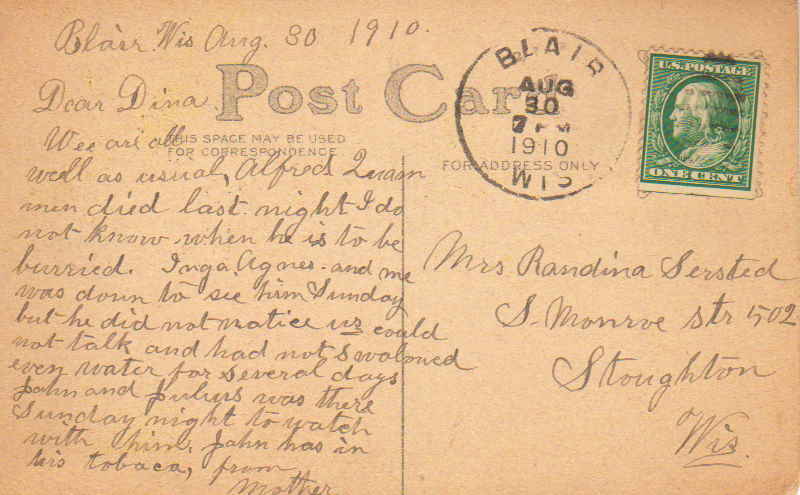 Blair Wis Aug. 30 1910.
Post Card
BLAIR
AUG
30
7 PM
1910
WIS
U.S. POSTAGE
ONE CENT
THIS SPACE MAY BE USED
FOR CORRESPONDENCE
FOR ADDRESS ONLY
Dear Dina
Wee are all
well as usual, Alfred Quam
men died last night I do
not know when he is to be
burried. Inga. Agnes. and me
was down to see him Sunday
but he did not notice us could
not talk and had not swaloued
even water for several days
John and Julius was there
Sunday night to watch
with him, John has in
his tobaca, from
Mother
Mrs Randina Sersted
S. Monroe Str 502
Stoughton
Wis.